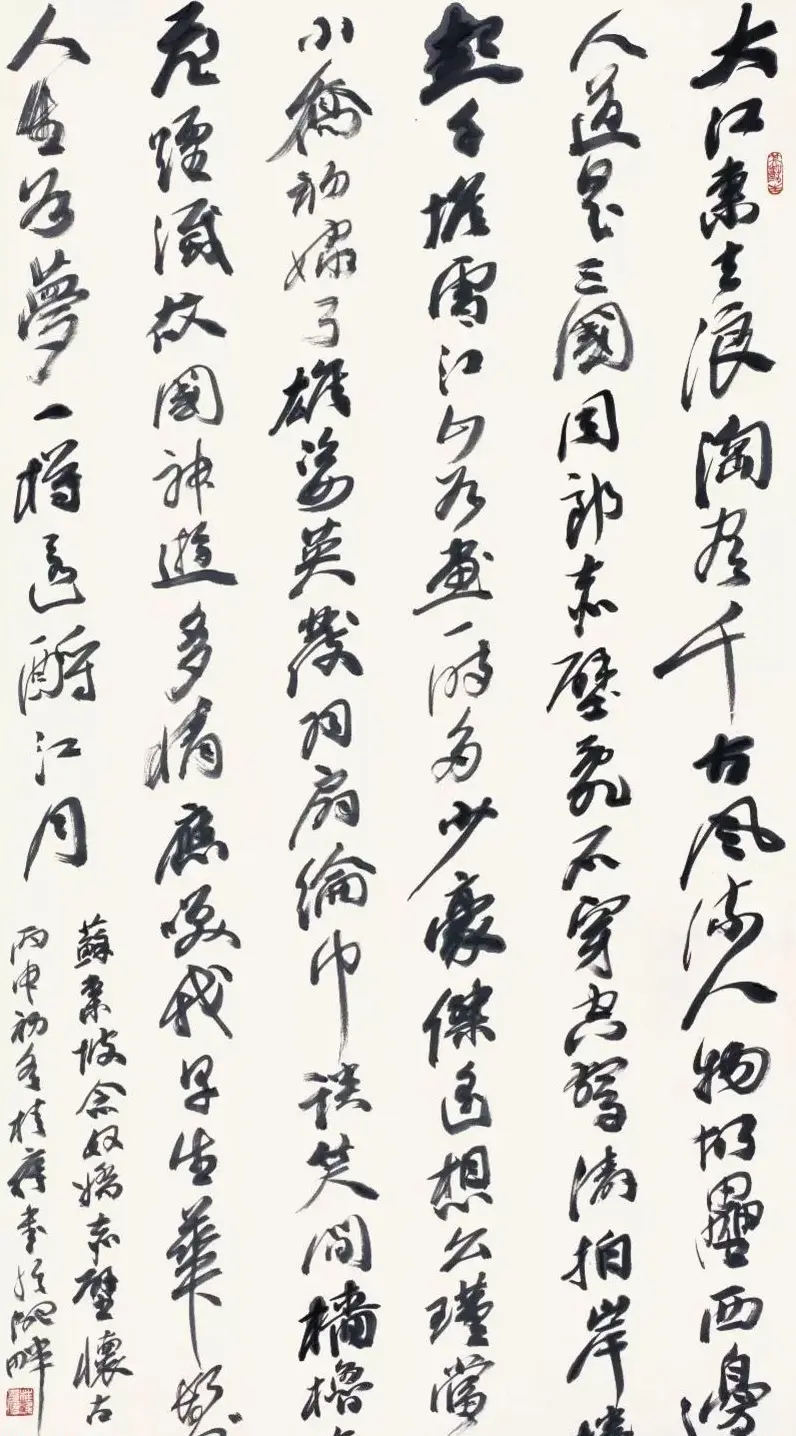 大江東去浪淘盡千古風流人物故壘西邊
人道是三國周郎赤壁亂石穿空驚濤拍岸
起千堆雪江山如畫一時多少豪傑遙想公瑾當
小橋初嫁了雄姿英發羽扇綸巾談笑間檣櫓
飛煙滅故國神遊多情應笑我早生華髮
人生如夢一樽還酹江月
蘇東坡念奴嬌赤壁懷古
丙申初冬桂書於畔